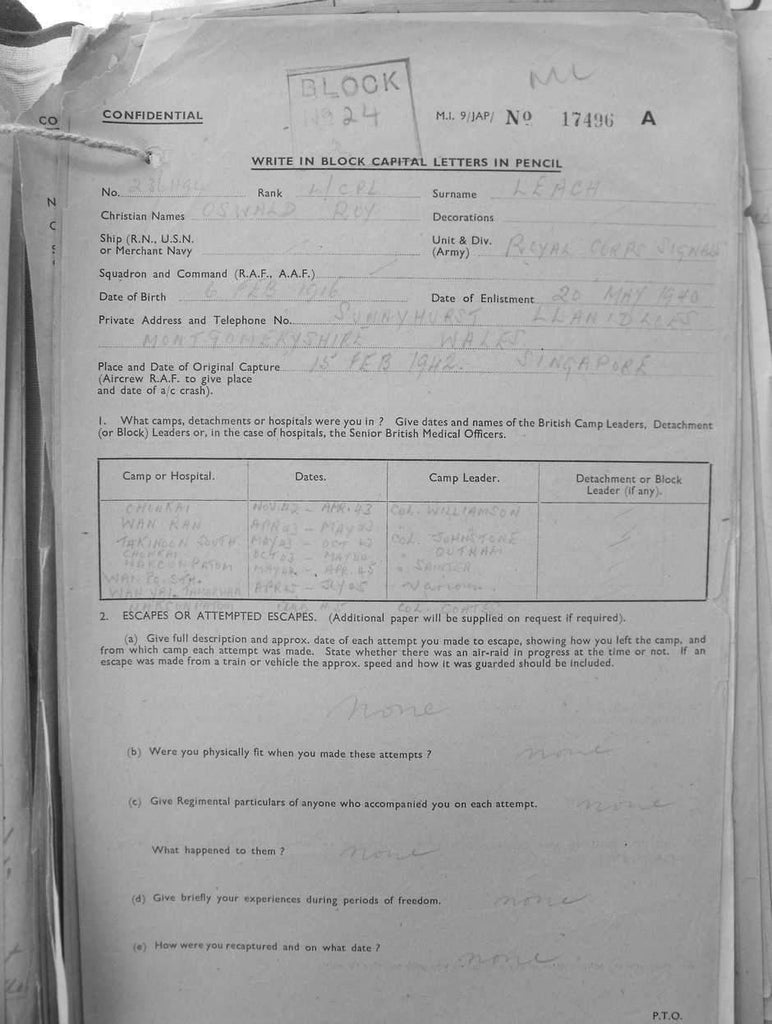 ML
BLOCK
No 24
CO
CONFIDENTIAL
M.I. 9/JAP/ No 17496 A
WRITE IN BLOCK CAPITAL LETTERS IN PENCIL
N
No. Rank L/CPL Surname LEACH
C
Christian Names OSWALD ROY Decorations
Ship (R.N., U.S.N. or Merchant Navy
Unit & Div. (Army) ROYAL CORPS SIGNALS
Squadron and Command (R.A.F., A.A.F.)
Date of Birth 6 FEB 1916 Date of Enlistment 20 MAY 1940
Private Address and Telephone No. SUNNYHURST LLANIDLOES
MONTGOMERYSHIRE WALES
Place and Date of Original Capture 15 FEB 1942. SINGAPORE
(Aircrew R.A.F. to give place
and date of a/c crash).
1. What camps, detachments or hospitals were you in ? Give dates and names of the British Camp Leaders, Detachment
(or Block) Leaders or, in the case of hospitals, the Senior British Medical Officers.
Camp or Hospital. Dates. Camp Leader. Detachment or Block
Leader (if any).
CHUNKAI NOV. 42 - APR. 43 COL. WILLIAMSON
WAN RAN APR 43 - MAY 43 "
TAKINOON SOUTH. MAY 43 - OCT 43 COL. JOHNSTONE
CHUNKAI OCT 43 - MAY 44 OUTRAM
NAKCON PATOM - APR. 45
WAN PO. STH. Various
COL. COATES
2. ESCAPES OR ATTEMPTED ESCAPES. (Additional paper will be supplied on request if required).
(a) Give full description and approx. date of each attempt you made to escape, showing how you left the camp, and
from which camp each attempt was made. State whether there was an air-raid in progress at the time or not. If an
escape was made from a train or vehicle the approx. speed and how it was guarded should be included.
none
(b) Were you physically fit when you made these attempts ? none
(c) Give Regimental particulars of anyone who accompanied you on each attempt. none
What happened to them ? none
(d) Give briefly your experiences during periods of freedom. none
(e) How were you recaptured and on what date ? none
P.T.O.